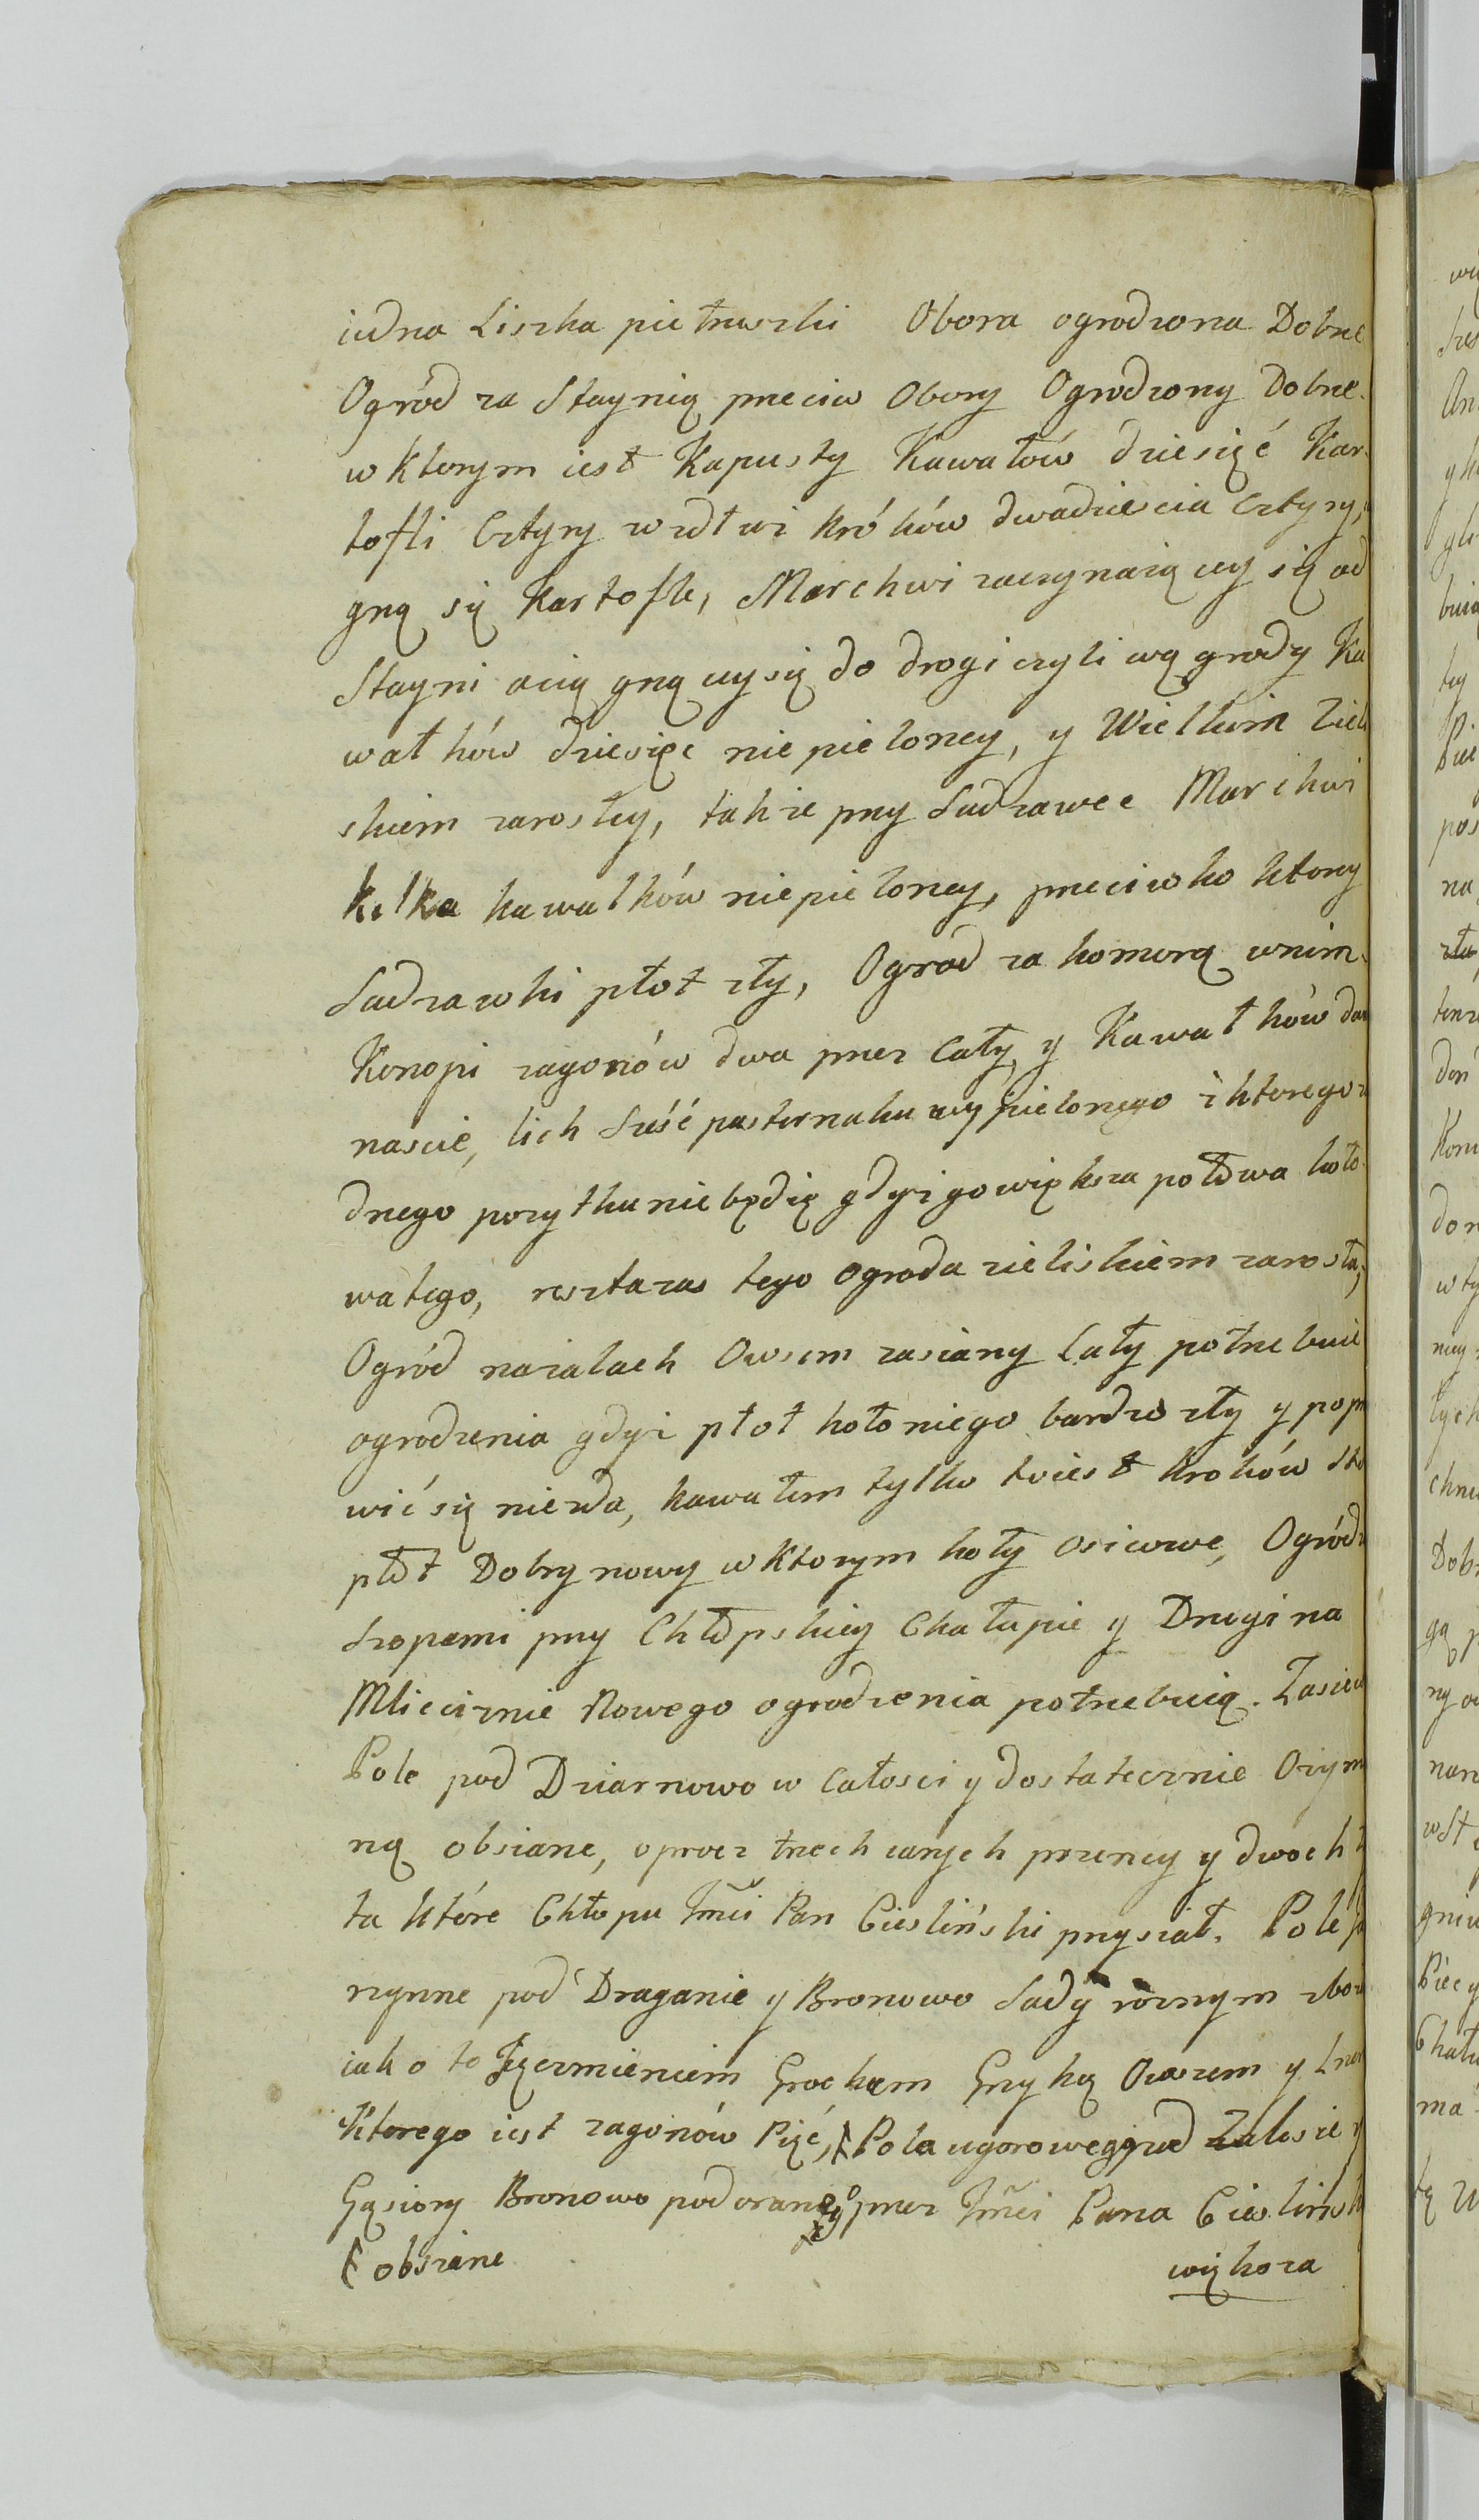 iedna Liszka pietruszki Obora ogrodzona Dobrze
Ogród za Staynią przeciw Obory Ogrodzony Dobrze.
w ktorym iest Kapusty Kawałów dziesięć Kar¬
tofli Cztyry wzdłuż króków dwadziescia Cztyry,
gną się Kartofle, Marchwi zaczynaiącey się od
Stayni aciągnącysię do drogi czyli wągrody Ka
wałków dziesięc nie pieloney, y Wielkim Ziel
skiem zarosłey, także przy Sadzawce Marchwi
kilka kawałków niepieloney, przeciwko ktory
Sadzawki płot zły, Ogrod za komorą wnim
Konopi zagonów dwa przez Cały y Kawałków dwa
nascie, lich Sześć pasternaku wypielonego z ktorego ża
dnego pożytku niebędzie gdyż go większa połowa koło
watego, reszta zas tego ogroda zieliskiem zarosła,
Ogród nazalach Owsem zasiany Cały potrzebuie
ogrodzenia gdyż płot koło niego bardzo zły y popra
wić się nieda, kawałem tylko to iest kroków Sto
płót Dobry nowy w ktorym koły osicowe, Ogród z
Szopami przy Chłopskiey Chałupie y Drugi na
Mlicczrnie Nowego ogrodzenia potrzebuią. Zasiew
Pole pod Dziarnowo w Całosci y dostatecznie Ozym
ną obsiane, oprocz trzech zarych pszenicy y dwoch ży
ta które Chłopu Jmci Pan Ciesliński przysiał. Pole ja
rzynne pod Draganie y Bronowo Sady rożnym zboż
iako to Jęczmieniem Grochem Gryką Owsem y Lnem
Ktorego iest zagonów Pięć, Pola ugorowego pod Zalesie y
Gąsiory Bronowo podoranego przez Jmci Pana Cieslinsk
obsiane większa